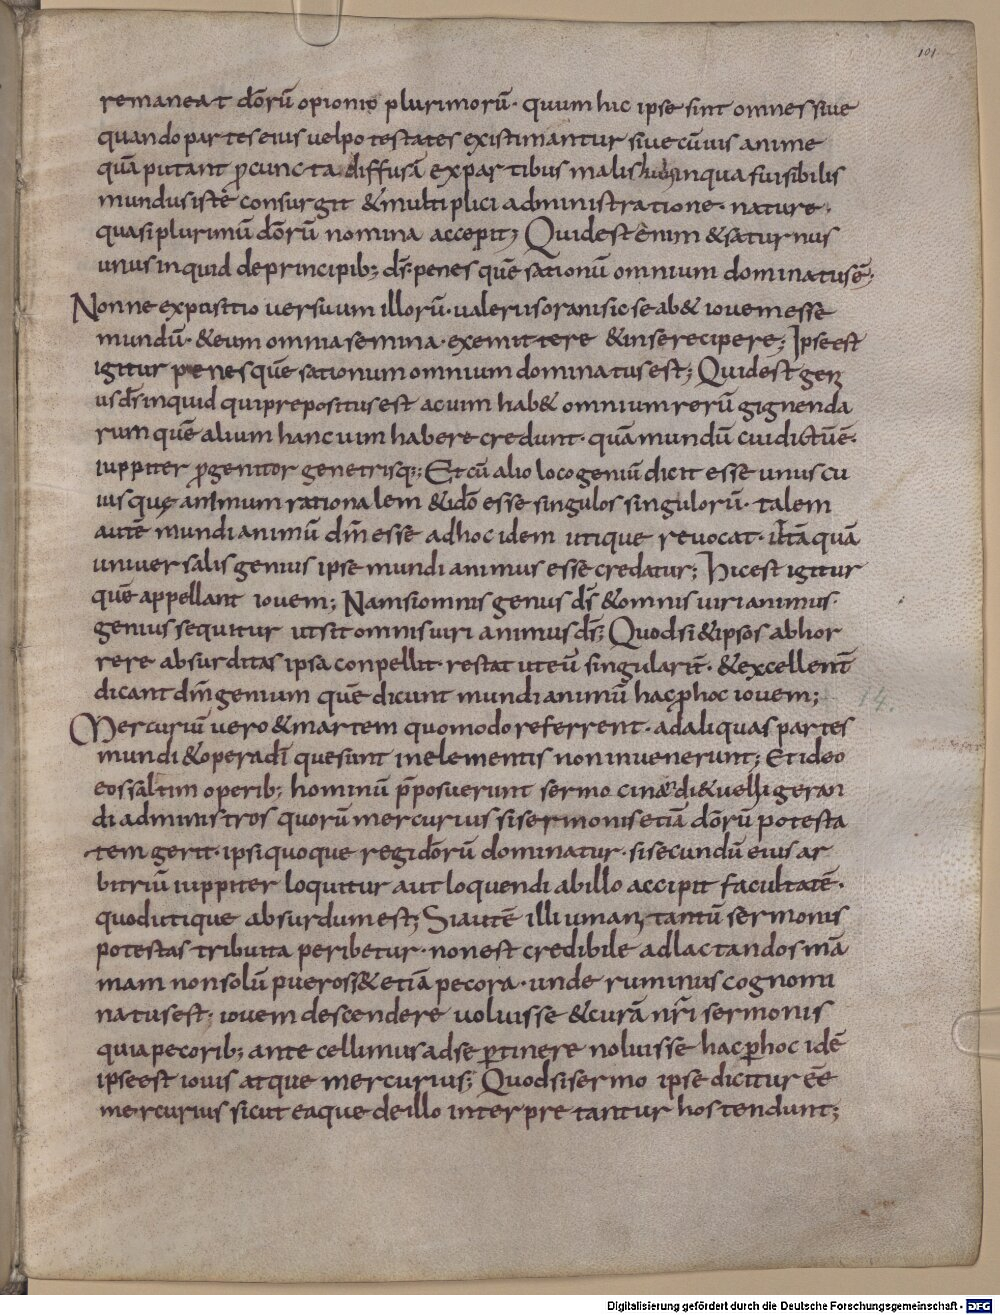 101
remaneat dōrū opionio plurimorū· quum hic ipse sint omnes siue
quando partes eius uel potestates existimantur siue cū uis anime
quā putant ꝓ cuncta diffusā ex partibus molis inqua fuisibilis
mundus iste consurgit & multiplici administratione· nature·
quasi plurimū dōrū nomina accepit; Quid est enim & saturnus
unus inquid de principib; dꝭ· penes quē sationū omnium dominatus ē;
Nonne expositio uersuum illorū· ualerius oranis sic se ab& iouem esse
mundū· & eum omnia semina· exemittere & in se recipere; Ipse est
igitur penes quē sationum omnium dominatus est; Quid est gen
us dꝭ inquid qui prepositus est ac uim hab& omnium rerū gignenda
rum quē alium hanc uim habere credunt· quā mundū cui dictū ē·
iuppiter ꝓgenitor genetrisq;; Et cū alio loco geniū dicit esse unus cu
ius que animum rationalem & idō esse singulos singulorū· talem
autē mundi animū dm̄ esse ad hoc idem utique reuocat· ut tā quā
uniuersalis genius ipse mundi animus esse credatur; Hic est igitur
quē appellant iouem; Nam si omnis genus dꝭ & omnis uiri animus·
genius sequitur ut sit omnis uiri animus dꝭ; Quod si & ipsos abhor
rere absurditas ipsa conpellit· restat ut eū singularit̄· & excellent̄
dicant dm̄ genium quē dicunt mundi animū hac ꝑ hoc iouem;
14.
Mercuriū uero & martem quomodo referrent· ad aliquas partes
mundi & opera dī que sunt in elementis non inuenerunt; Et ideo
eos saltim operib; hominū p̄posuerunt sermocinandi & uelligeran
di administros quorū mercurius si sermonis etiā dōrū potesta
tem gerit· ipsi quoque regi dōrū dominatur· si secundū eius ar
bitriū iuppiter loquitur aut loquendi ab illo accipit facultatē·
quod utique absurdum est; Si autē illi umanꝝ tantū sermonis
potestas tributa peribetur· non est credibile ad lactandos mā
mam non solū pueros s& etiā pecora· unde ruminus cognomi
natus est; iouem descendere uoluisse & curā nr̄i sermonis
quia pecorib; antecellimus ad se ꝑtinere noluisse hac ꝑ hoc idē
ipse est iouis atque mercurius; Quod si sermo ipse dicitur ēē
mercurius sicut ea que de illo interpretantur hostendunt;
Digitalisierung gefördert durch die Deutsche Forschungsgemeinschaft - DFG